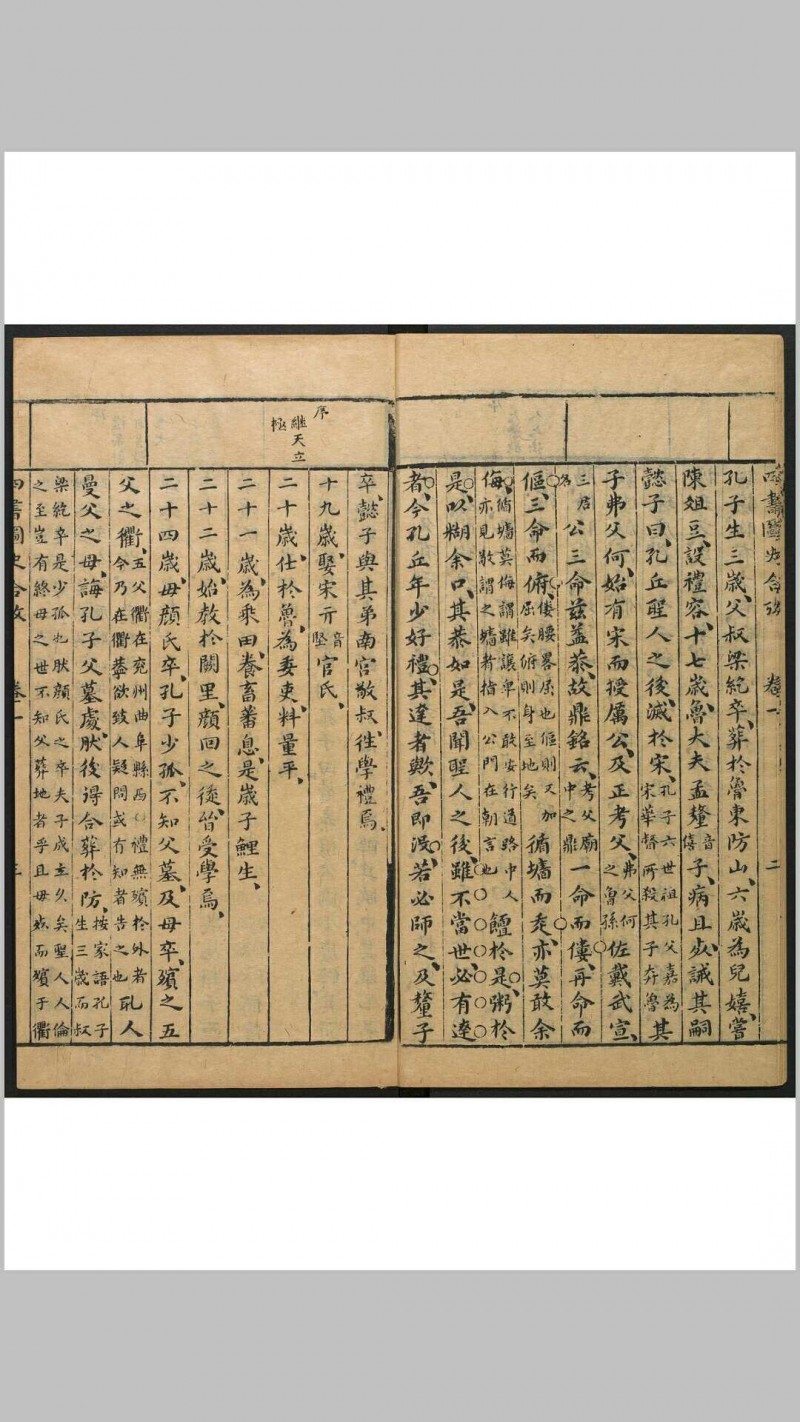 四書圖史合攷 卷一 二
孔子生三歲、父叔梁紇卒、葬於魯東防山、六歲為兒嬉、嘗
陳俎豆、設禮容、十七歲、魯大夫孟釐音僖子、病且死、誡其嗣
懿子曰、孔丘聖人之後、滅於宋、孔子六世祖孔父嘉為宋華督所殺其子奔魯其
子弗父何、始有宋而授厲公、及正考父、弗父何之曾孫佐戴武宣、
三君名公三命茲益恭、故鼎銘云、考父廟中之鼎一命而僂、再命而
傴、三命而俯、僂腰畧屈也傴則又加屈矣俯則身至地矣循墻而走、亦莫敢余
侮、循墻莫侮謂雖讓卑不敢安行道路中人亦見敬謂之墻者指入公門在朝言也饘於是、粥於
是、以糊余口、其恭如是、吾聞聖人之後、雖不當世、必有達
者、今孔丘年少好禮、其達者歟、吾即沒、若必師之、及釐子
卒、懿子與其弟南宮敬叔、徃學禮焉、
序
繼天立極
十九歲、娶宋亓音堅官氏、
二十歲、仕於魯、為委吏、料量平、
二十一歲、為乘田、養畜蕃息、是歲子鯉生、
二十二歲、始教於闕里、顏回之徒、皆受學焉、
二十四歲、母顏氏卒、孔子少孤、不知父墓、及母卒、殯之五
父之衢、五父衢在兗州曲阜縣西○禮無殯於外者今乃在衢葢欲致人疑問或有知者告之也郰人
曼父之母、誨孔子父墓處、肰後得合葬於防、按家語孔子生三歲而叔
梁紇卒是少孤也肰顏氏之卒夫子成立久矣聖人人倫之至豈有終母之世不知父葬地者乎且母死而殯于衢
四書圖史合攷 卷一 三